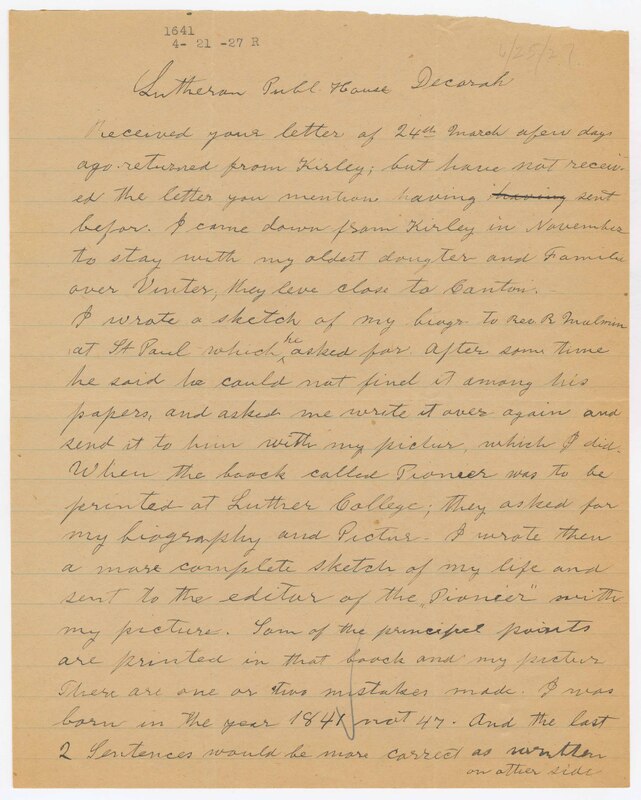 1641
4-21-27 R
4/25/27
Lutheran Publ. House Decorah
Received your letter of 24th March afew days
ago returned from Kirley; but have not receiv-
ed the letter you mention having having sent
befor. I came down from Kirley in November
to stay with my oldest dougter and Familie
over Vinter, they leve close to Canton.
I wrote a sketch of my biogr to Rev. B. Malmin
at St Paul which he asked for. After som time
he said he could not find it among his
papers, and asked me write it over again and
send it to him with my pictur, which I did.
When the boock called Pioneer was to be
printed at Luther College; they asked for
my biography and Pictur. I wrote then
a more complete sketch of my life and
sent to the editor of the „Pioneer" with
my picture. Som of the principel points
are printed in that boock and my pictur
There are one or two mistakes made. I was
born in the year 1841 not 47. And the last
2 Sentences would be more correct as written
on other side